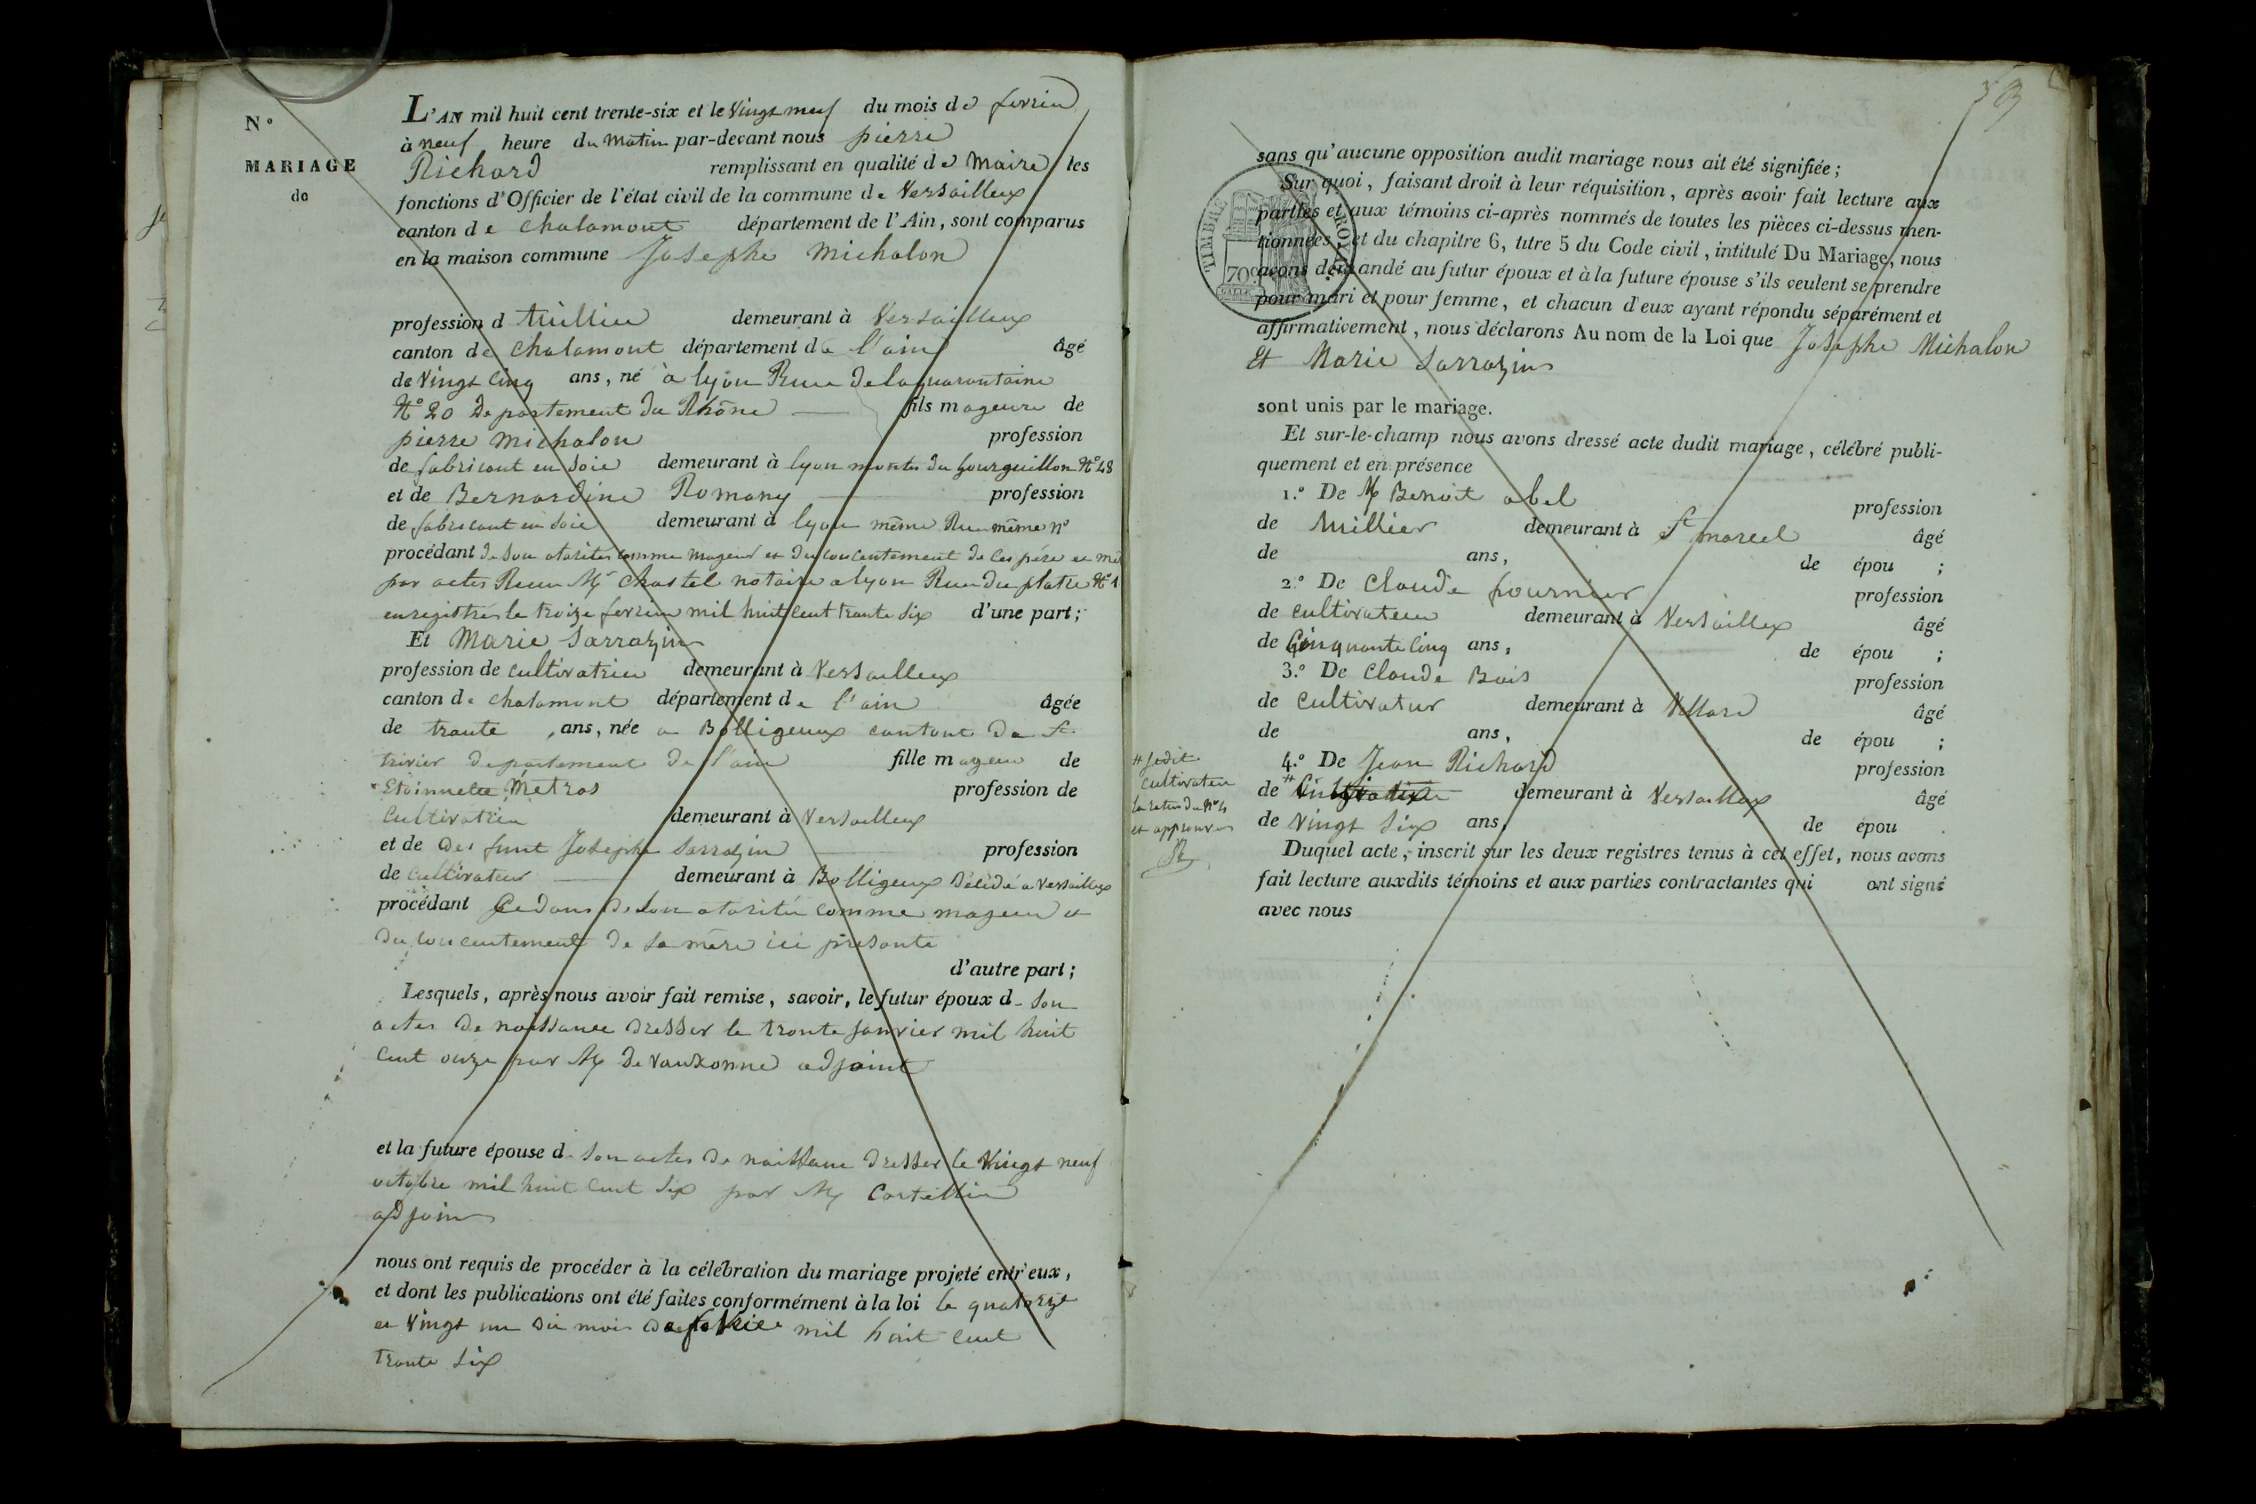 N.°
MARIAGE
de
L'AN mil huit cent trente-six et le Vingt neuf du mois de fevrier
à neuf heure du matin par-devant nous pierre
Richard remplissant en qualité de Maire les
fonctions d'Officier de l'état civil de la commune de Versailleux
canton de chalamont département de l'Ain, sont comparus
en la maison commune Josephe Michalon
profession d demeurant à Versailleux
canton de chalamont département de l'ain âgé
de Vingt Cinq ans, né à lyon Rue Delaquarontaine
N° 20 Departement du Rhône fils mageure de
pierre Michalon profession
de fabricant en Soie demeurant à lyon montés du gourguillon N° 48
et de Bernardine Romany profession
de fabricant en Soie demeurant à lyon même Rue même n°
procédant de Son atorités comme mageur et du concentement de Ces pére et mer
par actes Recu Mr Chastel notaire a lyon Rue du platre N° 1
enregistrés le troize fevrier mil huit Cent trante Six d'une part;
Et Marie Sarrazin
profession de cultivatrice demeurant à Versailleux
canton de chalamont département de l'ain âgée
de trante ans, née a Bolligeux cantont De St
trivier departement de l'ain fille mageur de
Etoinnette Metras profession de
Cultivatrice demeurant à Versailleux
et de Des funt Josephe Sarrazin profession
de Cultivateur demeurant à Bolligeux Décidé a Versailleux
procédant Cedans De Son atoritée comme mageur et
du concentement De Sa mère ici présante
d'autre part;
Lesquels, après nous avoir fait remise, savoir, le futur époux d Son
actes De naissance Dresser le trante Janvier mil huit
Cent onze par Mr De Vauxonne adjoint
et la future épouse d Son actes De naissance Dresser le Vingt neuf
octobre mil huit Cent Six par Mr
adjoin
nous ont requis de procéder à la célébration du mariage projeté entr'eux,
et dont les publications ont été faites conformément à la loi le quatorze
et Vingt un du mois de fevrier mil huit Cent
trante Six
sans qu'aucune opposition audit mariage nous ait été signifiée;
Sur quoi, faisant droit à leur réquisition, après avoir fait lecture aux
parties et aux témoins ci-après nommés de toutes les pièces ci-dessus men-
tionnées, et du chapitre 6, titre 5 du Code civil, intitulé Du Mariage, nous
avons demandé au futur époux et à la future épouse s'ils veulent se prendre
pour mari et pour femme, et chacun d'eux ayant répondu séparément et
affirmativement, nous déclarons Au nom de la Loi que Josephe Michalon
Et Marie Sarrazin
TIMBRE ROYAL
70c
sont unis par le mariage.
Et sur-le-champ nous avons dressé acte dudit mariage, célébré publi-
quement et en présence
1.° De Mr Benoit abel profession
de Millier demeurant à St marcel âgé
de ans, de épou ;
2.° De Claude fournier profession
de cultivateur demeurant à Versaillex âgé
de Cinquante Cinq ans, de épou ;
3.° De Claude Bois profession
de Cultivatur demeurant à Villard âgé
de ans, de épou ;
4.° De Jean Richard profession
de # demeurant à Versaillex âgé
de Vingt Six ans, de épou .
# Jedit
Cultivateur
et approuver
Duquel acte, inscrit sur les deux registres tenus à cet effet, nous avons
fait lecture auxdits témoins et aux parties contractantes qui ont signé
avec nous